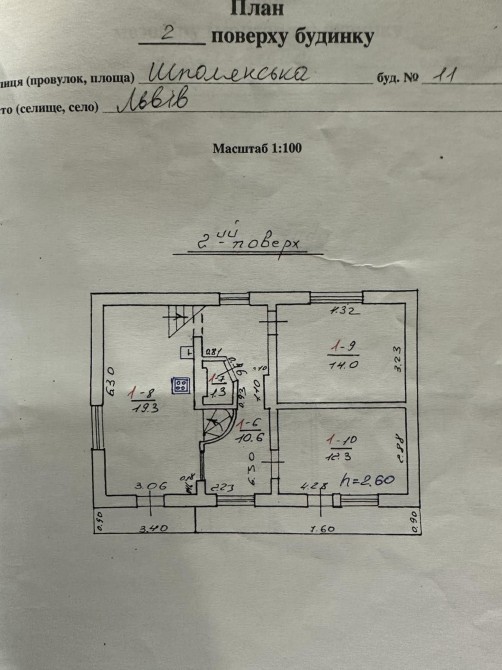 План
2 поверху будинку
лиця (провулок, площа) Шполянська буд. № 11
то (селище, село) Львів
Масштаб 1:100
2-ий поверх
4.32
0.81
6.30
1-9
14.0
3.23
1-7
1.3
1-8
19.3
0.93
1.10
1-6
10.6
1-10
12.3
2.88
6.30
h=2.60
3.06
2.23
4.28
0.90
3.40
7.60
0.90